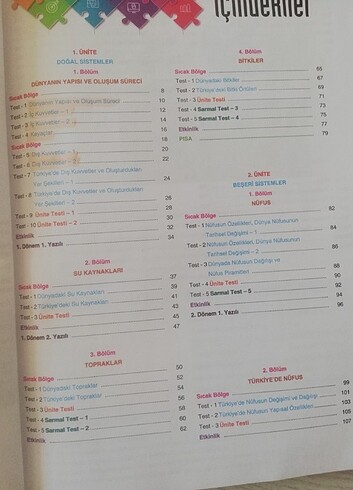 İçindekiler
1. ÜNİTE
DOĞAL SİSTEMLER
1. Bölüm
DÜNYANIN YAPISI VE OLUŞUM SÜRECİ
Sıcak Bölge 8
Test - 1 Dünyanın Yapısı ve Oluşum Süreci 10
Test - 2 İç Kuvvetler - 1 12
Test - 3 İç Kuvvetler - 2 14
Test - 4 Kayaçlar 16
Sıcak Bölge 18
Test - 5 Dış Kuvvetler - 1 20
Test - 6 Dış Kuvvetler 22
Test - 7 Türkiye'de Dış Kuvvetler ve Oluşturdukları
Yer Şekilleri - 1 24
Test - 8 Türkiye'de Dış Kuvvetler ve Oluşturdukları
Yer Şekilleri - 2 26
Test - 9 Ünite Testi - 1 28
Test - 10 Ünite Testi - 2 30
Etkinlik 32
1. Dönem 1. Yazılı 34
2. Bölüm
SU KAYNAKLARI
Sıcak Bölge 37
Test - 1 Dünyadaki Su Kaynakları 39
Test - 2 Türkiye'deki Su Kaynakları 41
Test - 3 Ünite Testi 43
Etkinlik 45
1. Dönem 2. Yazılı 47
3. Bölüm
TOPRAKLAR
Sıcak Bölge 50
Test - 1 Dünyadaki Topraklar 52
Test - 2 Türkiye'deki Topraklar 54
Test - 3 Ünite Testi 56
Test - 4 Sarmal Test - 1 58
Test - 5 Sarmal Test - 2 60
Etkinlik 62
4. Bölüm
BİTKİLER
Sıcak Bölge 65
Test - 1 Dünyadaki Bitkiler 67
Test - 2 Türkiye'deki Bitki Örtüleri 69
Test - 3 Ünite Testi 71
Test - 4 Sarmal Test - 3 73
Test - 5 Sarmal Test - 4 75
Etkinlik 77
PISA 79
2. ÜNİTE
BEŞERİ SİSTEMLER
1. Bölüm
NÜFUS
Sıcak Bölge 82
Test - 1 Nüfusun Özellikleri, Dünya Nüfusunun
Tarihsel Değişimi - 1 84
Test - 2 Nüfusun Özellikleri, Dünya Nüfusunun
Tarihsel Değişimi - 2 86
Test - 3 Dünyada Nüfusun Dağılışı ve
Nüfus Piramitleri 88
Test - 4 Ünite Testi 90
Test - 5 Sarmal Test - 5 92
Etkinlik 94
2. Dönem 1. Yazılı 96
2. Bölüm
TÜRKİYE'DE NÜFUS
Sıcak Bölge 99
Test - 1 Türkiye'de Nüfusun Değişimi ve Dağılışı 101
Test - 2 Türkiye'de Nüfusun Yapısal Özellikleri 103
Test - 3 Ünite Testi 105
Etkinlik 107